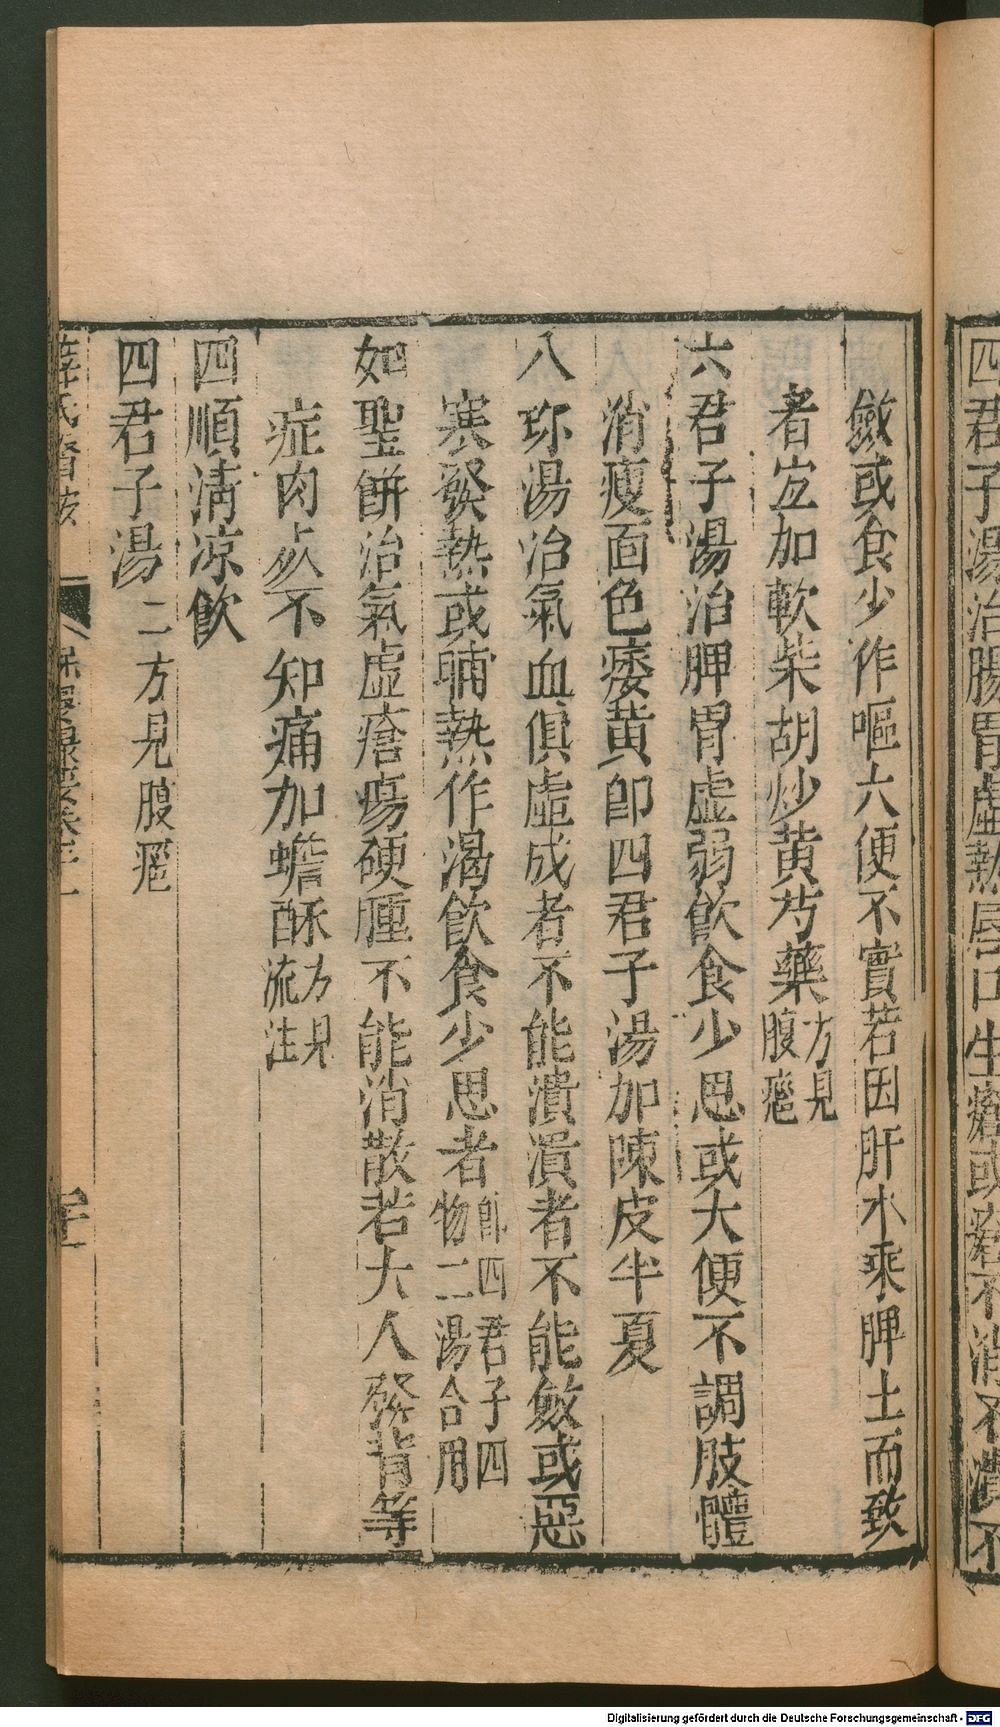 四君子湯治腸胃虛熱唇口生瘡或瘡不消不潰不
斂或食少作嘔大便不實若因肝木乘脾土而致
者宜加軟柴胡炒黃芍藥方見腹癰
六君子湯治脾胃虛弱飲食少思或大便不調肢體
消瘦面色痿黃卽四君子湯加陳皮半夏
八珎湯治氣血俱虛成者不能潰潰者不能斂或惡
寒發熱或晡熱作渴飲食少思者卽四君子四物二湯合用
如聖餅治氣虛瘡瘍硬腫不能消散若大人發背等
症肉死不知痛加蟾酥方見流注
四順清凉飲
四君子湯二方見腹癰
薛氏醫按
保嬰
Digitalisierung gefördert durch die Deutsche Forschungsgemeinschaft - DFG